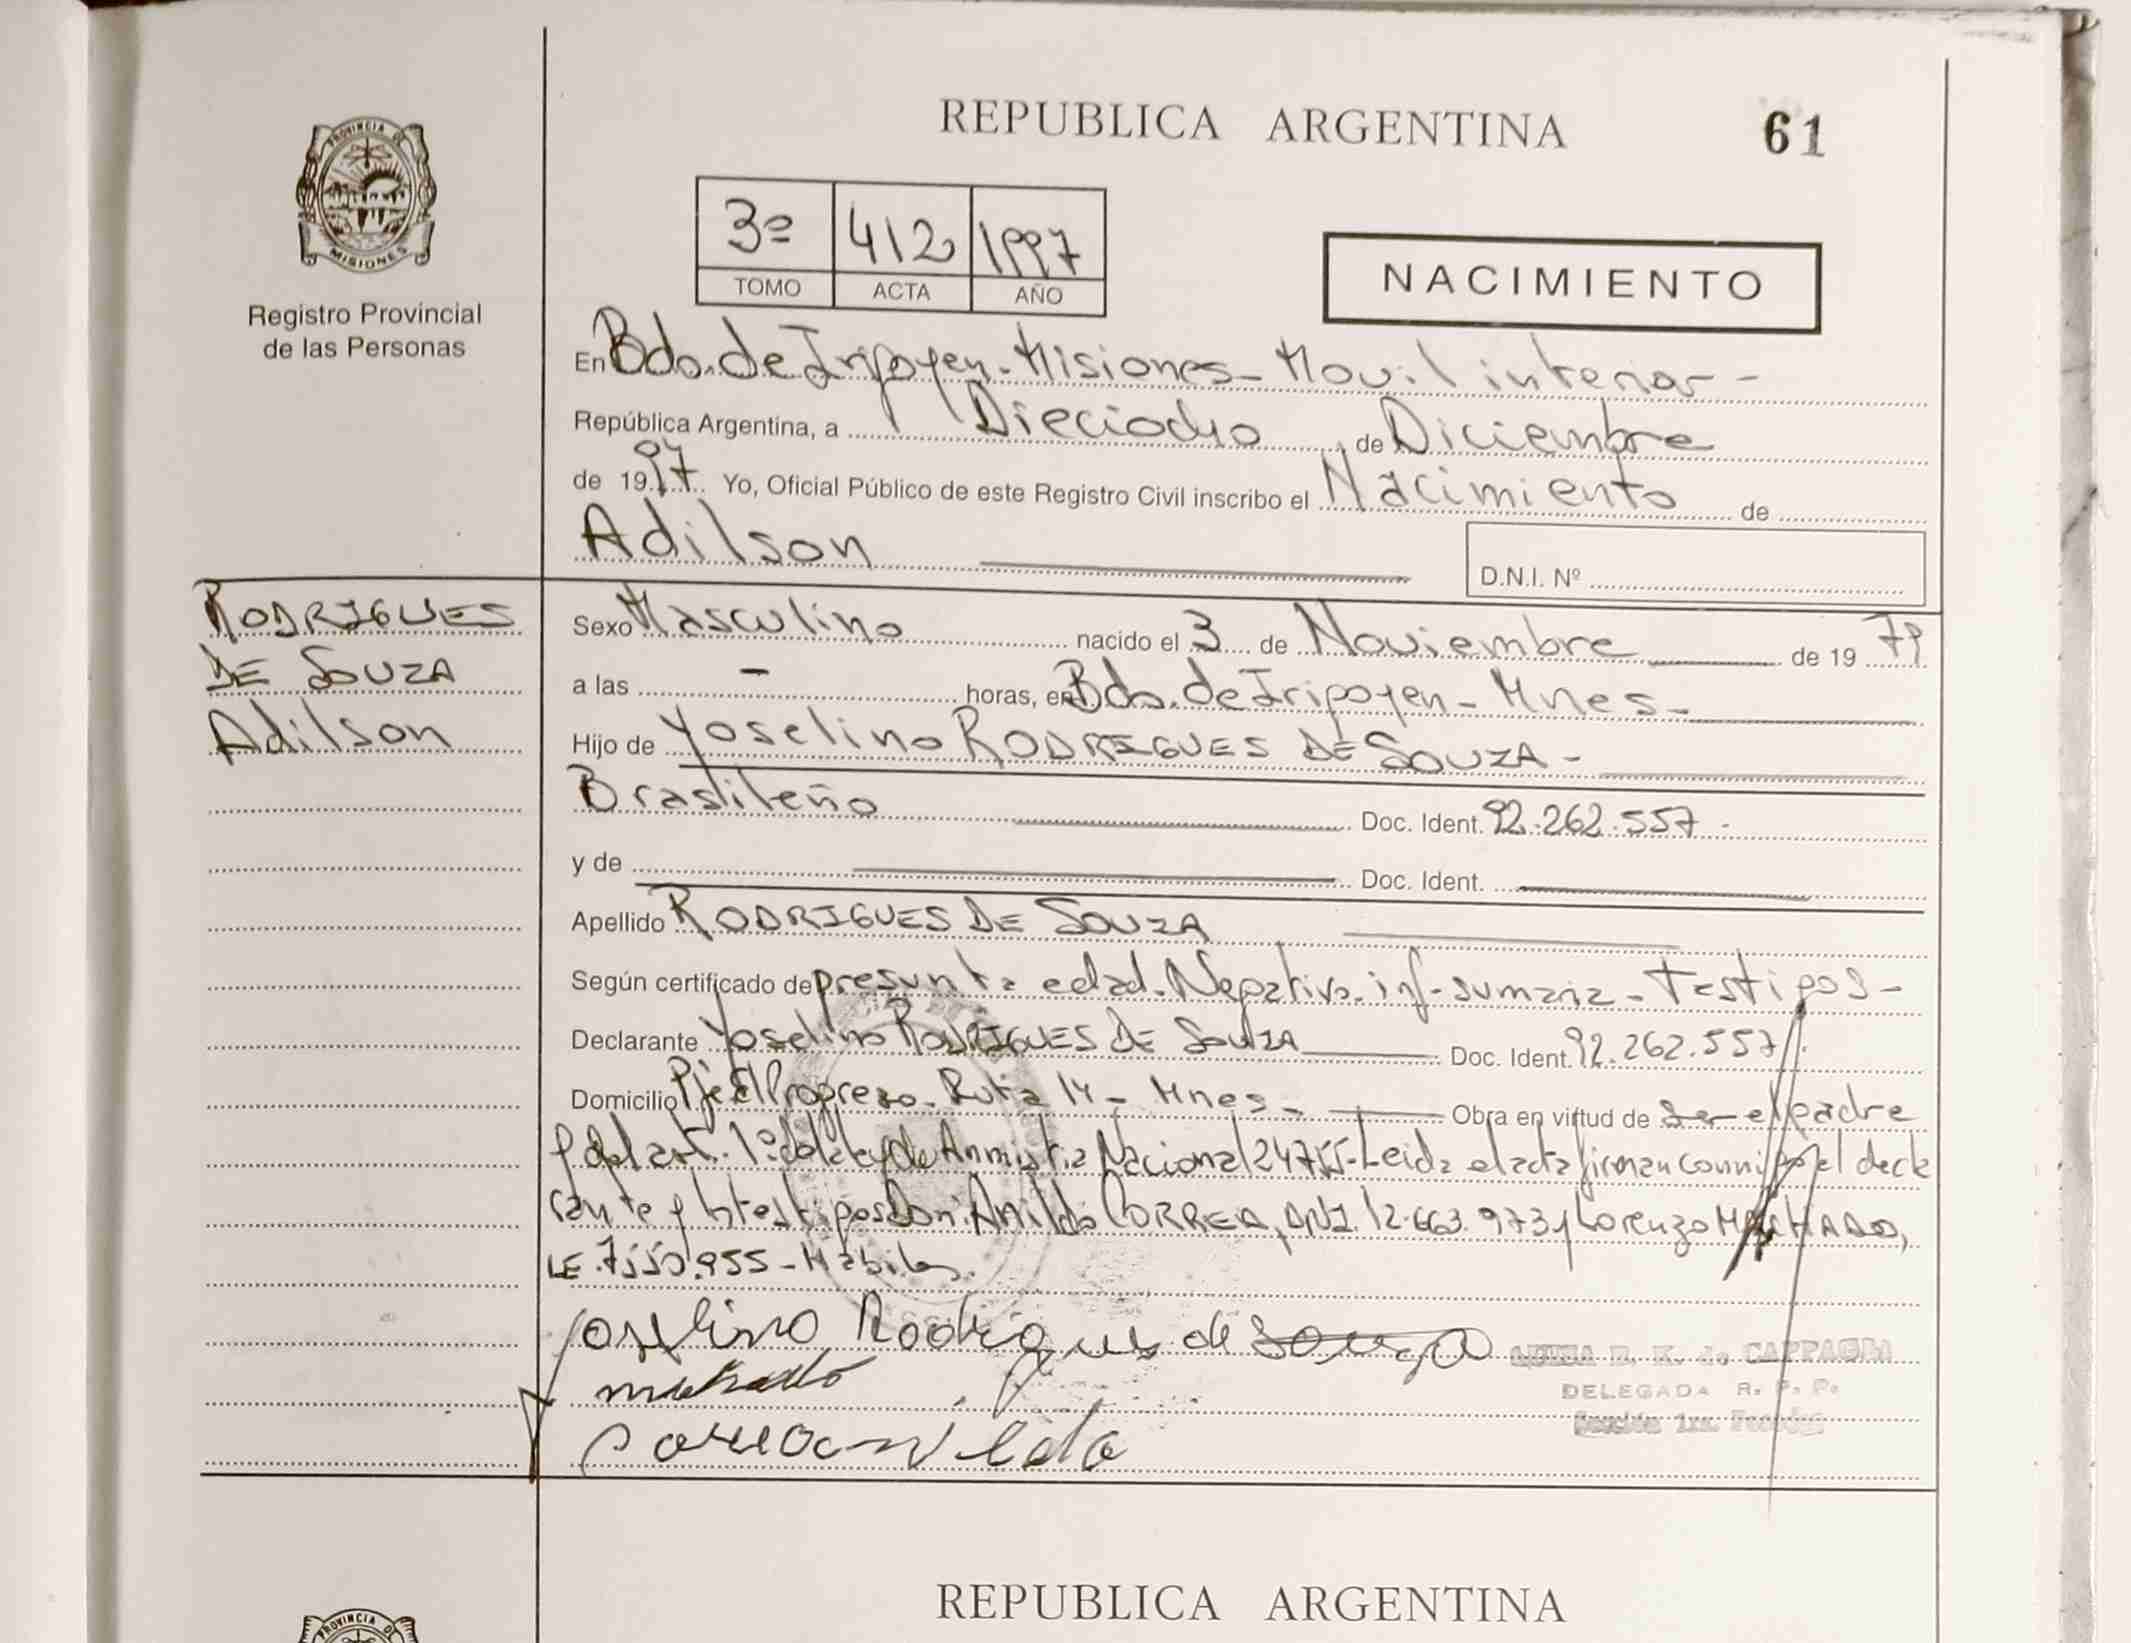 REPUBLICA ARGENTINA 61
PROVINCIA DE
MISIONES
Registro Provincial
de las Personas
3º 412 1997
TOMO ACTA AÑO
NACIMIENTO
En Bdo. de Irigoyen - Misiones - Movil interior -
República Argentina, a Dieciocho de Diciembre
de 1997 Yo, Oficial Público de este Registro Civil inscribo el Nacimiento de
Adilson
D.N.I. Nº
RODRIGUES
DE SOUZA
Adilson
Sexo Masculino nacido el 3 de Noviembre de 1979
a las - horas, en Bdo. de Irigoyen - Mnes -
Hijo de Yoselino RODRIGUES DE SOUZA -
Brasileño Doc. Ident. 92.262.557 -
y de Doc. Ident.
Apellido RODRIGUES DE SOUZA
Según certificado de presunta edad. Negativa. inf- sumaria - Testigos -
Declarante Yoselino RODRIGUES DE SOUZA Doc. Ident. 92.262.557.
Domicilio Pje El Progreso. Ruta 14 - Mnes - Obra en virtud de ser el padre
y del art. 1º de la ley de Anmistia Nacional 24755 - Leida el acta firman conmigo el decla
rante y los testigos Don: Anildo CORREA, DNI. 12.663.973 y Lorenzo MACHADO,
LE. 7.550.955 - Hábiles.
Yoselino Rodrigues de Souza
machado
Correa nildo
de CAPPAGLI
DELEGADA R. P. P.
REPUBLICA ARGENTINA
PROVINCIA DE